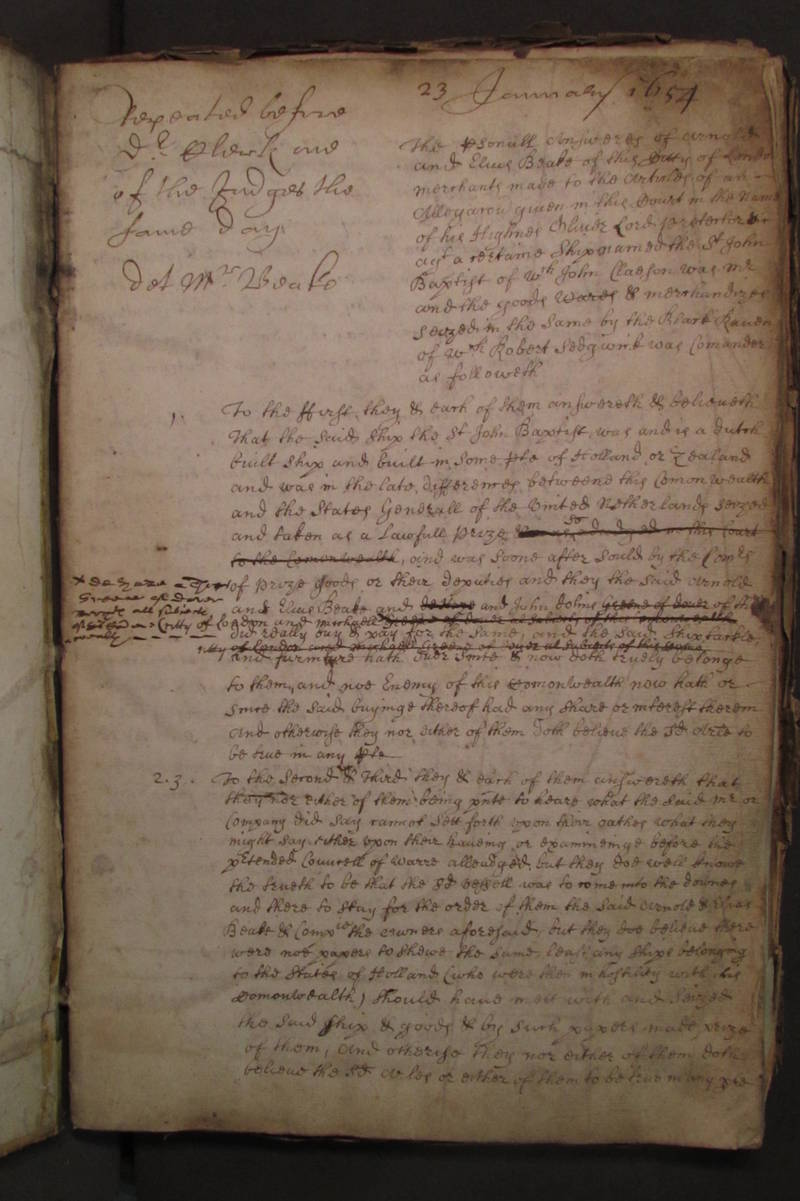 23 January 1654
Repeated before
Dr. Clerk one
of the Judges the
same day
det Mr. Beake
The psonall Answeres of Arnold
and Elias Beake of this Citty of London
merchants made to the Articles of an
Allegacon given in this Court in the Name
of his Highnes Oliver Lord Protector &c
agt a certaine Ship named the St John
Baptist of wch John Claeson was mr
and the goods wares & merchandizes
seized in the same by the Black Raven
of wch Robert Sedgwick was Comander
as followeth
1. To the ffirst they & each of them answereth & beleiveth
That the said ship the St John Baptist was and is a dutch
built ship and built in some pte of Holland or Zealand
and was in the late differences betweene this Comonwealth
and the States Generall of the United Netherlands seized
and taken as a Lawfull prize in this Court
to the Comonwealth, and was soone after sould by the Comrs
of prize goods or their deputies and they the said Arnold
and Elias Beake and and John Dolins Greene of dover of the
Citty of London and Michaell
did really buy & pay for the same, and the said Ship tackle
of London and Michaell Greene of Dover all subjects of this
and furniture hath ever since & now doth truely belonge
to them, and noe Enemy of this Comonwealth now hath or
since the said buyinge thereof had any share or interest therein
And otherwise they nor either of them doth beleive the sd Arte to
be true in any pte
2.3. To the second & Third they & each of them answereth that
they nor either of them being pnte to heare what the said mr or
Company did say cannot sett forth upon their oathes what they
might say either upon their haveing or examineinge before the
prtended Councell of Warre alleadged, but they doe well knowe
the trueth to be that the sd vessell was to come into the downes
and there to stay for the order of them the said Arnold & Elias
Beake & Compie the owners aforesaid, but they doe beleive there
were noe papers to shewe the same, least any ships belonging
to the States of Holland (who were then in hostility with this
Comonwealth) should have mett with and seized
the said ship & goods & by such papers made prize
of them, And otherise they nor either of them doth
beleive the sd Arles or either of them to be true in any pte